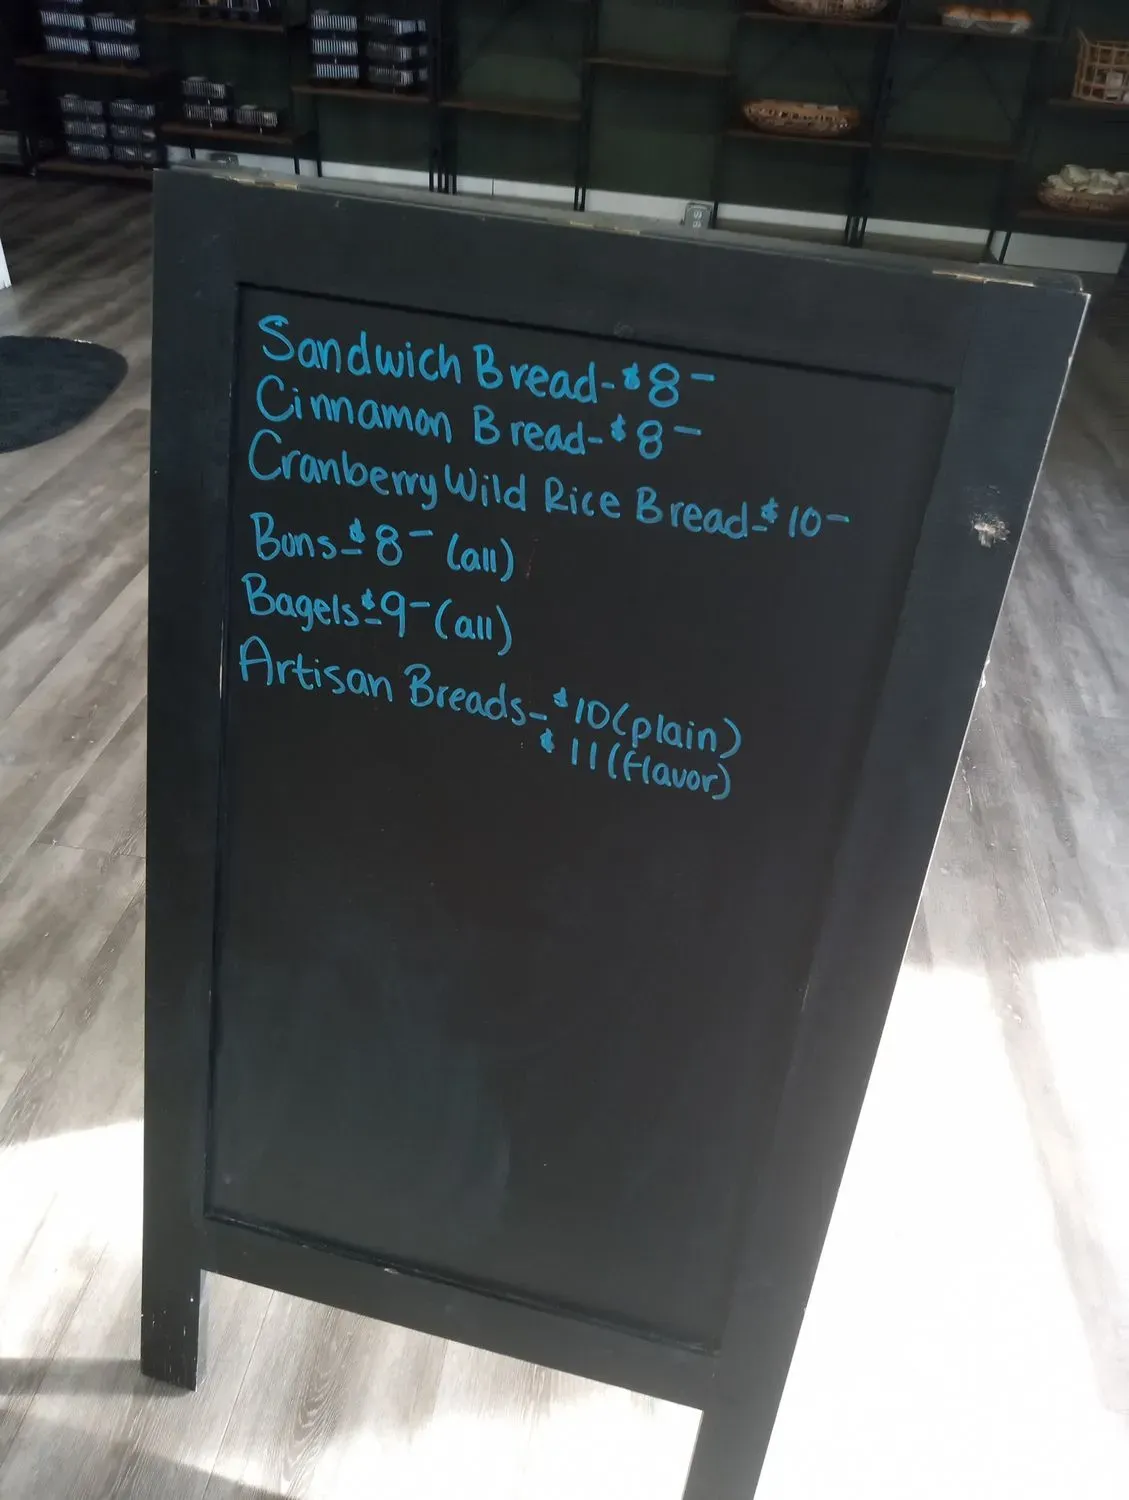 Sandwich Bread-$8-
Cinnamon Bread-$8-
Cranberry Wild Rice Bread-$10-
Buns-$8- (all)
Bagels-$9-(all)
Artisan Breads-$10(plain)
$11(flavor)